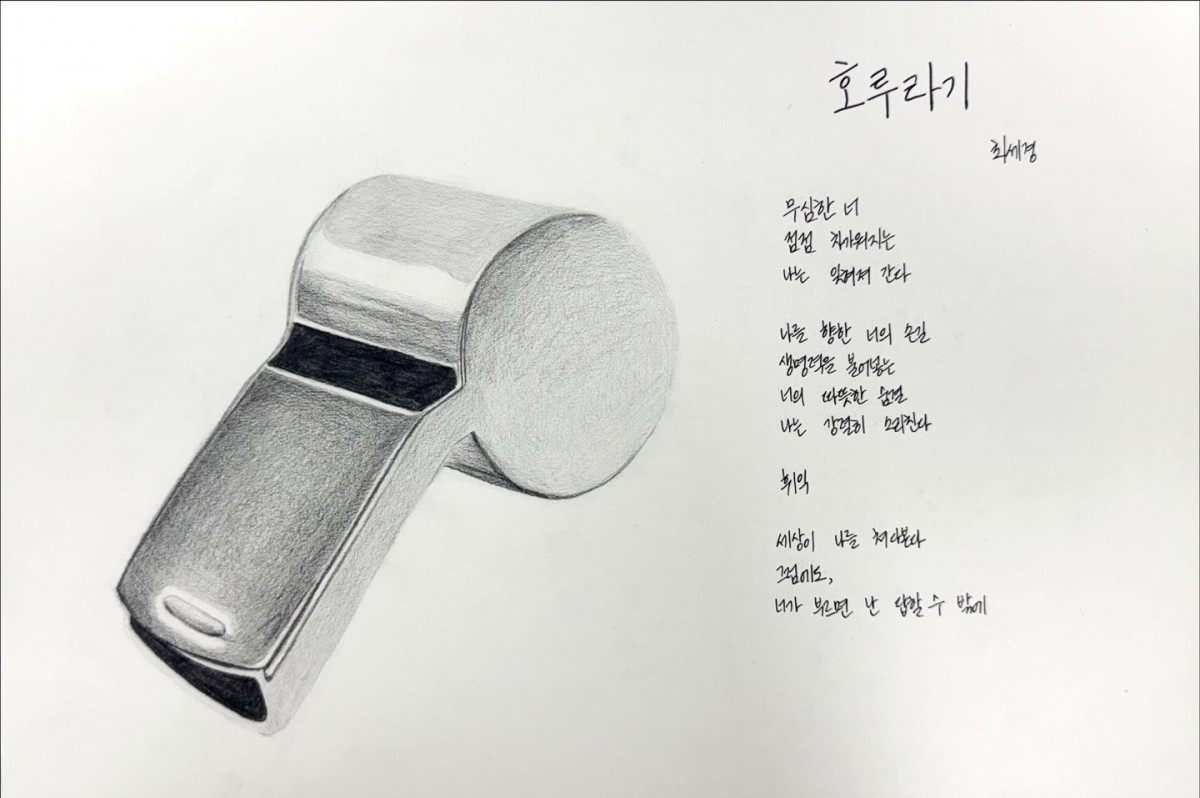 호루라기
최세경
무심한 너
점점 차가워지는
나는 잊혀져 간다
나를 향한 너의 손길
생명력을 불어넣는
너의 따뜻한 숨결
나는 강렬히 소리친다
휘익
세상이 나를 쳐다본다
그럼에도,
너가 부르면 난 답할 수 밖에